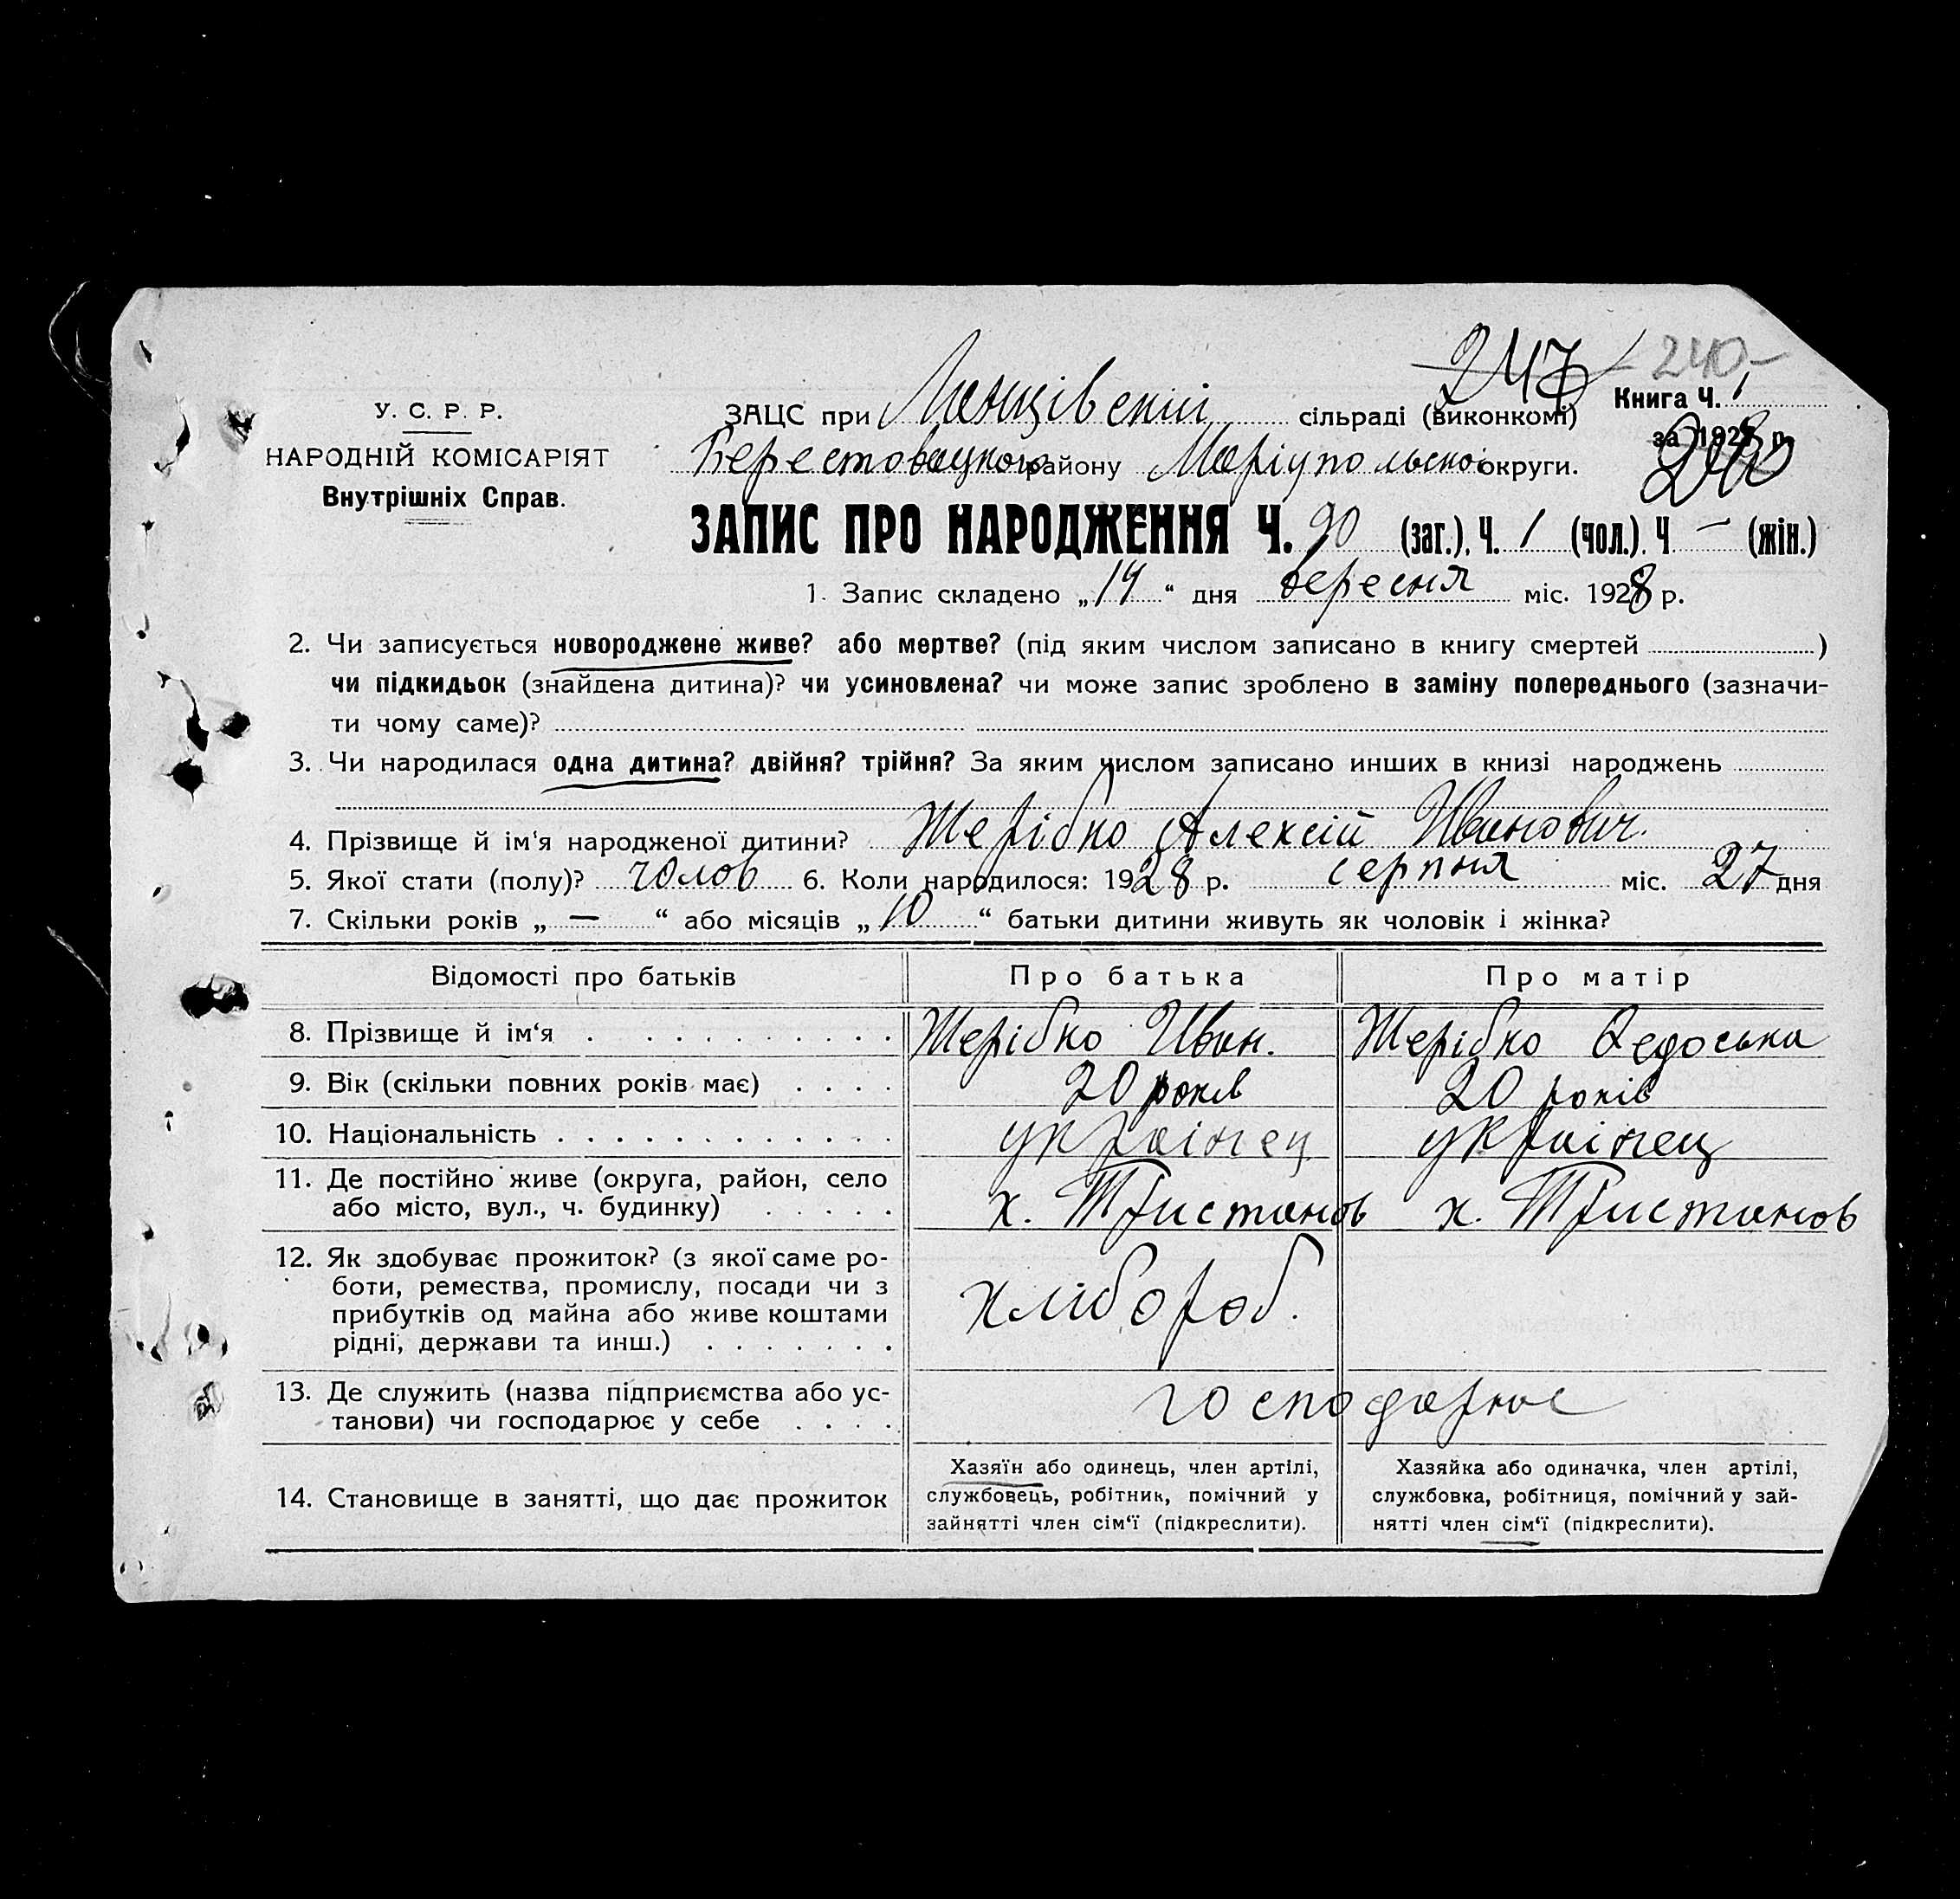 247 240
У. С. Р. Р.
НАРОДНІЙ КОМІСАРІЯТ
Внутрішніх Справ.
ЗАЦС при сільраді (виконкомі) Книга Ч. 1
Берестовецкого району Маріупольскоі округи. за 1928 р.
ЗАПИС ПРО НАРОДЖЕННЯ Ч. 90 (заг.). Ч. 1 (чол.). Ч — (жін.)
1. Запис складено „14“ дня вересня міс. 1928 р.
2. Чи записується новороджене живе? або мертве? (під яким числом записано в книгу смертей )
чи підкидьок (знайдена дитина)? чи усиновлена? чи може запис зроблено в заміну попереднього (зазначи-
ти чому саме)?
3. Чи народилася одна дитина? двійня? трійня? За яким числом записано инших в книзі народжень
4. Прізвище й ім'я народженої дитини? Жерібко Алексій Иванович.
5. Якої стати (полу)? чолов 6. Коли народилося: 1928 р. серпня міс. 27 дня
7. Скільки років „—“ або місяців „10“ батьки дитини живуть як чоловік і жінка?
Відомості про батьків Про батька Про матір
8. Прізвище й ім‘я Жерібко Иван. Жерібко Федоська
9. Вік (скільки повних років має) 20 років 20 років
10. Національність украінец украінец
11. Де постійно живе (округа, район, село
або місто, вул., ч. будинку) х. Тристанов х. Тристанов
12. Як здобуває прожиток? (з якої саме ро-
боти, ремества, промислу, посади чи з
прибутків од майна або живе коштами
рідні, держави та инш.) хлібороб.
13. Де служить (назва підприємства або ус-
танови) чи господарює у себе господарює
14. Становище в занятті, що дає прожиток
Хазяїн або одинець, член артілі,
службовець, робітник, помічний у
зайнятті член сім‘ї (підкреслити).
Хазяйка або одиначка, член артілі,
службовка, робітниця, помічний у зай-
нятті член сім‘ї (підкреслити).